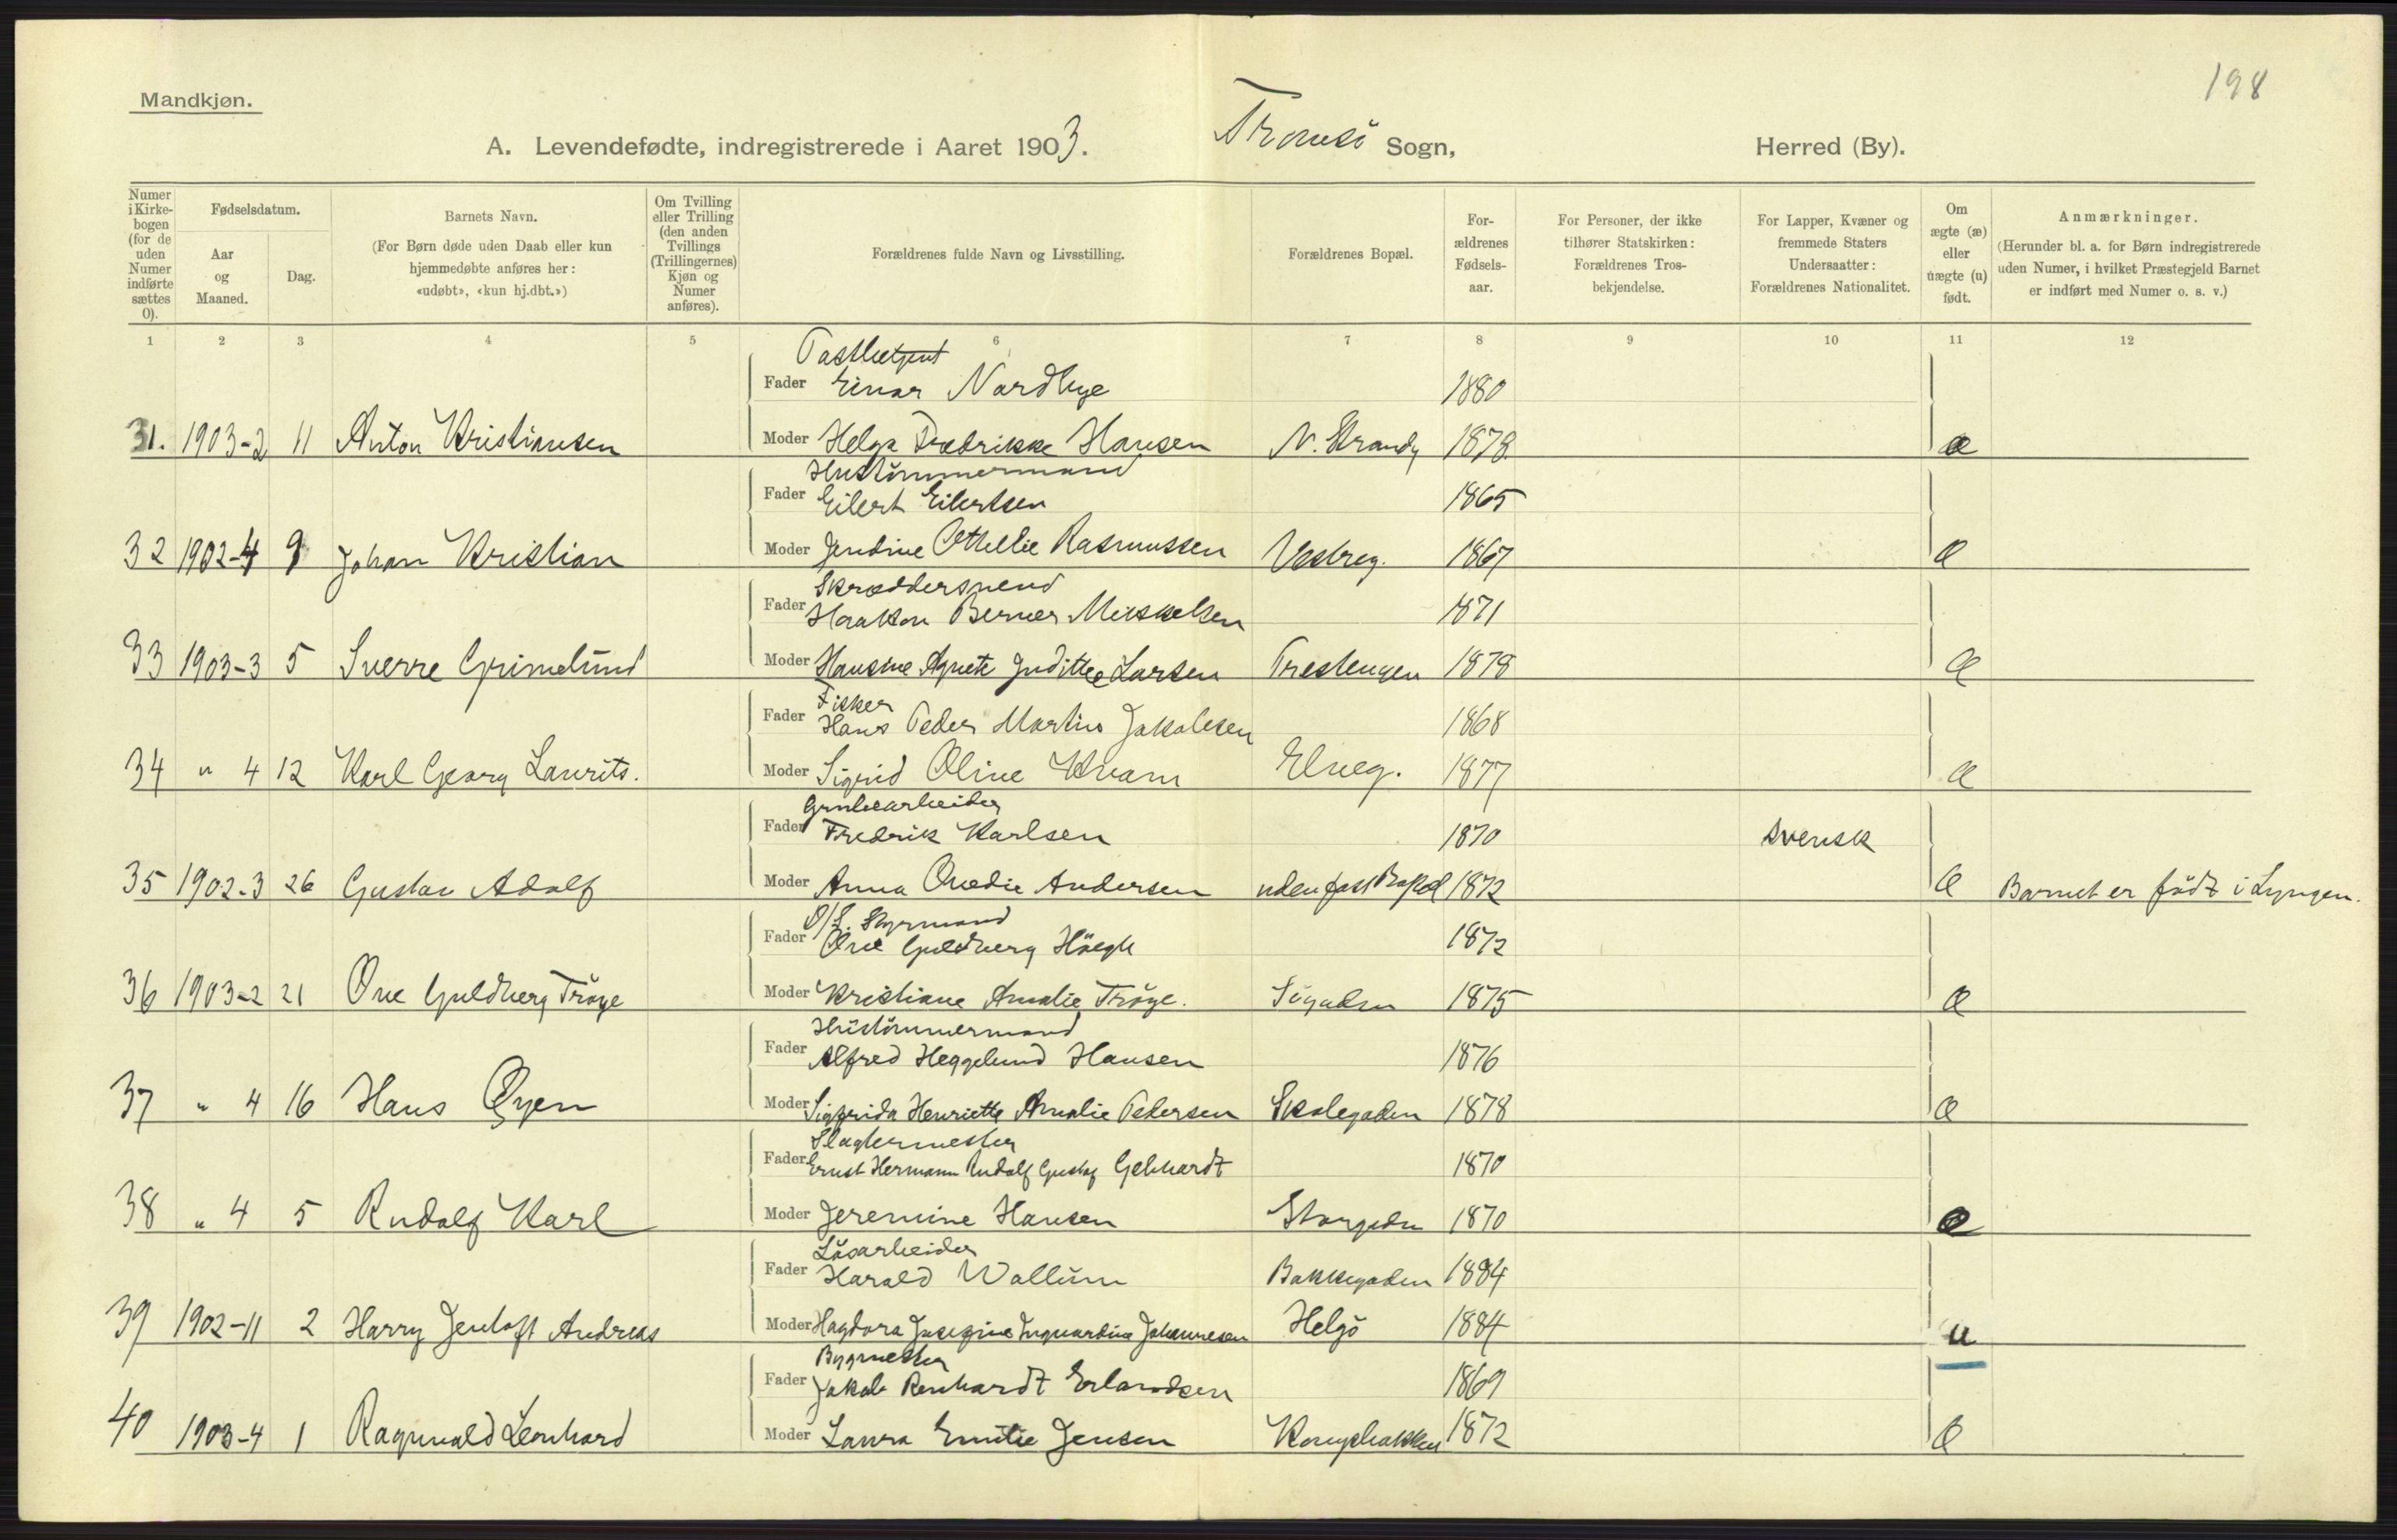 198
Mandkjøn.
A. Levendefødte, indregistrerede i Aaret 1903. Tromsö Sogn, Herred (By).
Numer i Kirkebogen (for de uden Numer indførte sættes 0).
Fødselsdatum.
Aar og Maaned.
Dag.
Barnets Navn.
(For Børn døde uden Daab eller kun hjemmedøbte anføres her: «udøbt», «kun hj.dbt.»)
Om Tvilling eller Trilling (den anden Tvillings (Trillingernes) Kjøn og Numer anføres).
Forældrenes fulde Navn og Livsstilling.
Forældrenes Bopæl.
Forældrenes Fødselsaar.
For Personer, der ikke tilhører Statskirken: Forældrenes Trosbekjendelse.
For Lapper, Kvæner og fremmede Staters Undersaatter: Forældrenes Nationalitet.
Om ægte (æ) eller uægte (u) født.
Anmærkninger.
(Herunder bl. a. for Børn indregistrerede uden Numer, i hvilket Præstegjeld Barnet er indført med Numer o. s. v.)
1 2 3 4 5 6 7 8 9 10 11 12
Fader Einar Nordbye 1880
31. 1903-2 11 Anton Kristiansen Moder Helga Fredrikke Hansen N. Strandg 1878 æ
Hustömmermand
Fader Eilert Eilertsen 1865
32 1902-4 9 Johan Kristian Moder Jendine Ottellie Rasmussen Vestreg. 1867 æ
Skræddersvend
Fader Haakon Berner Mikkelsen 1871
33 1903-3 5 Sverre Grimelund Moder Hansine Agnete Judithe Larsen 1878 æ
Fisker
Fader Hans Peder Martin Jakobsen 1868
34 " 4 12 Karl Georg Laurits. Moder Sigrid Oline Kvam Elveg. 1877 æ
Grubearbeider
Fader Fredrik Karlsen 1870 svensk
35 1902-3 26 Gustav Adolf Moder Anna Ovedie Andersen uden fast Bopæl 1872 æ Barnet er födt i Lyngen.
Styrmand
Fader Ove Guldberg Höegh 1872
36 1903-2 21 Ove Guldberg Tröye Moder Kristiane Amalie Tröye. Sögaden 1875 æ
Hustömmermand
Fader Alfred Heggelund Hansen 1876
37 " 4 16 Hans Øyen Moder Sigfrida Henriette Amalie Pedersen Skolegaden 1878 æ
Slagtermester
Fader Ernst Hermann Rudolf Gustaf Gebhardt 1870
38 " 4 5 Rudolf Karl Moder Jeremine Hansen Storgaden 1870 æ
Lösarbeider
Fader Harald Wallum Bakkegaden 1884
39 1902-11 2 Harry Jentoft Andreas Moder Hagdora Josefine Ingvardine Johannesen Helgö 1884 u
Bygmester
Fader Jakob Renhardt Erlandsen 1869
40 1903-4 1 Ragnvald Leonhard Moder Laura Emilie Jensen Kongsbakken 1872 æ